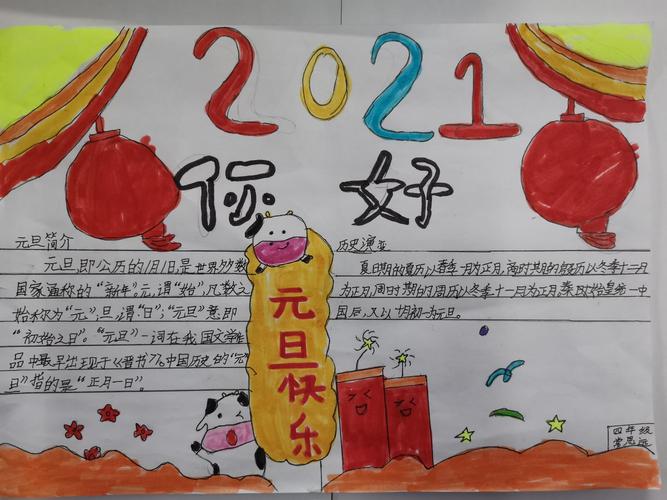 2021
你好
元旦简介
元旦,即公历的1月1日,是世界多数
国家通称的“新年”。元,谓“始”,凡数之
始称为“元”;旦,谓“日”;“元旦”意即
“初始之日”。“元旦”一词在我国文学作
品中最早出现于《晋书》。中国历史的“元
旦”指的是“正月一日”。
历史演变
夏日期的夏历以春季一月为正月,商时期的殷历以冬季十二月
为正月,周时期的周历以冬季十一月为正月。秦始皇统一中
国后,又以
为元旦。
元旦快乐
四年级
常思远